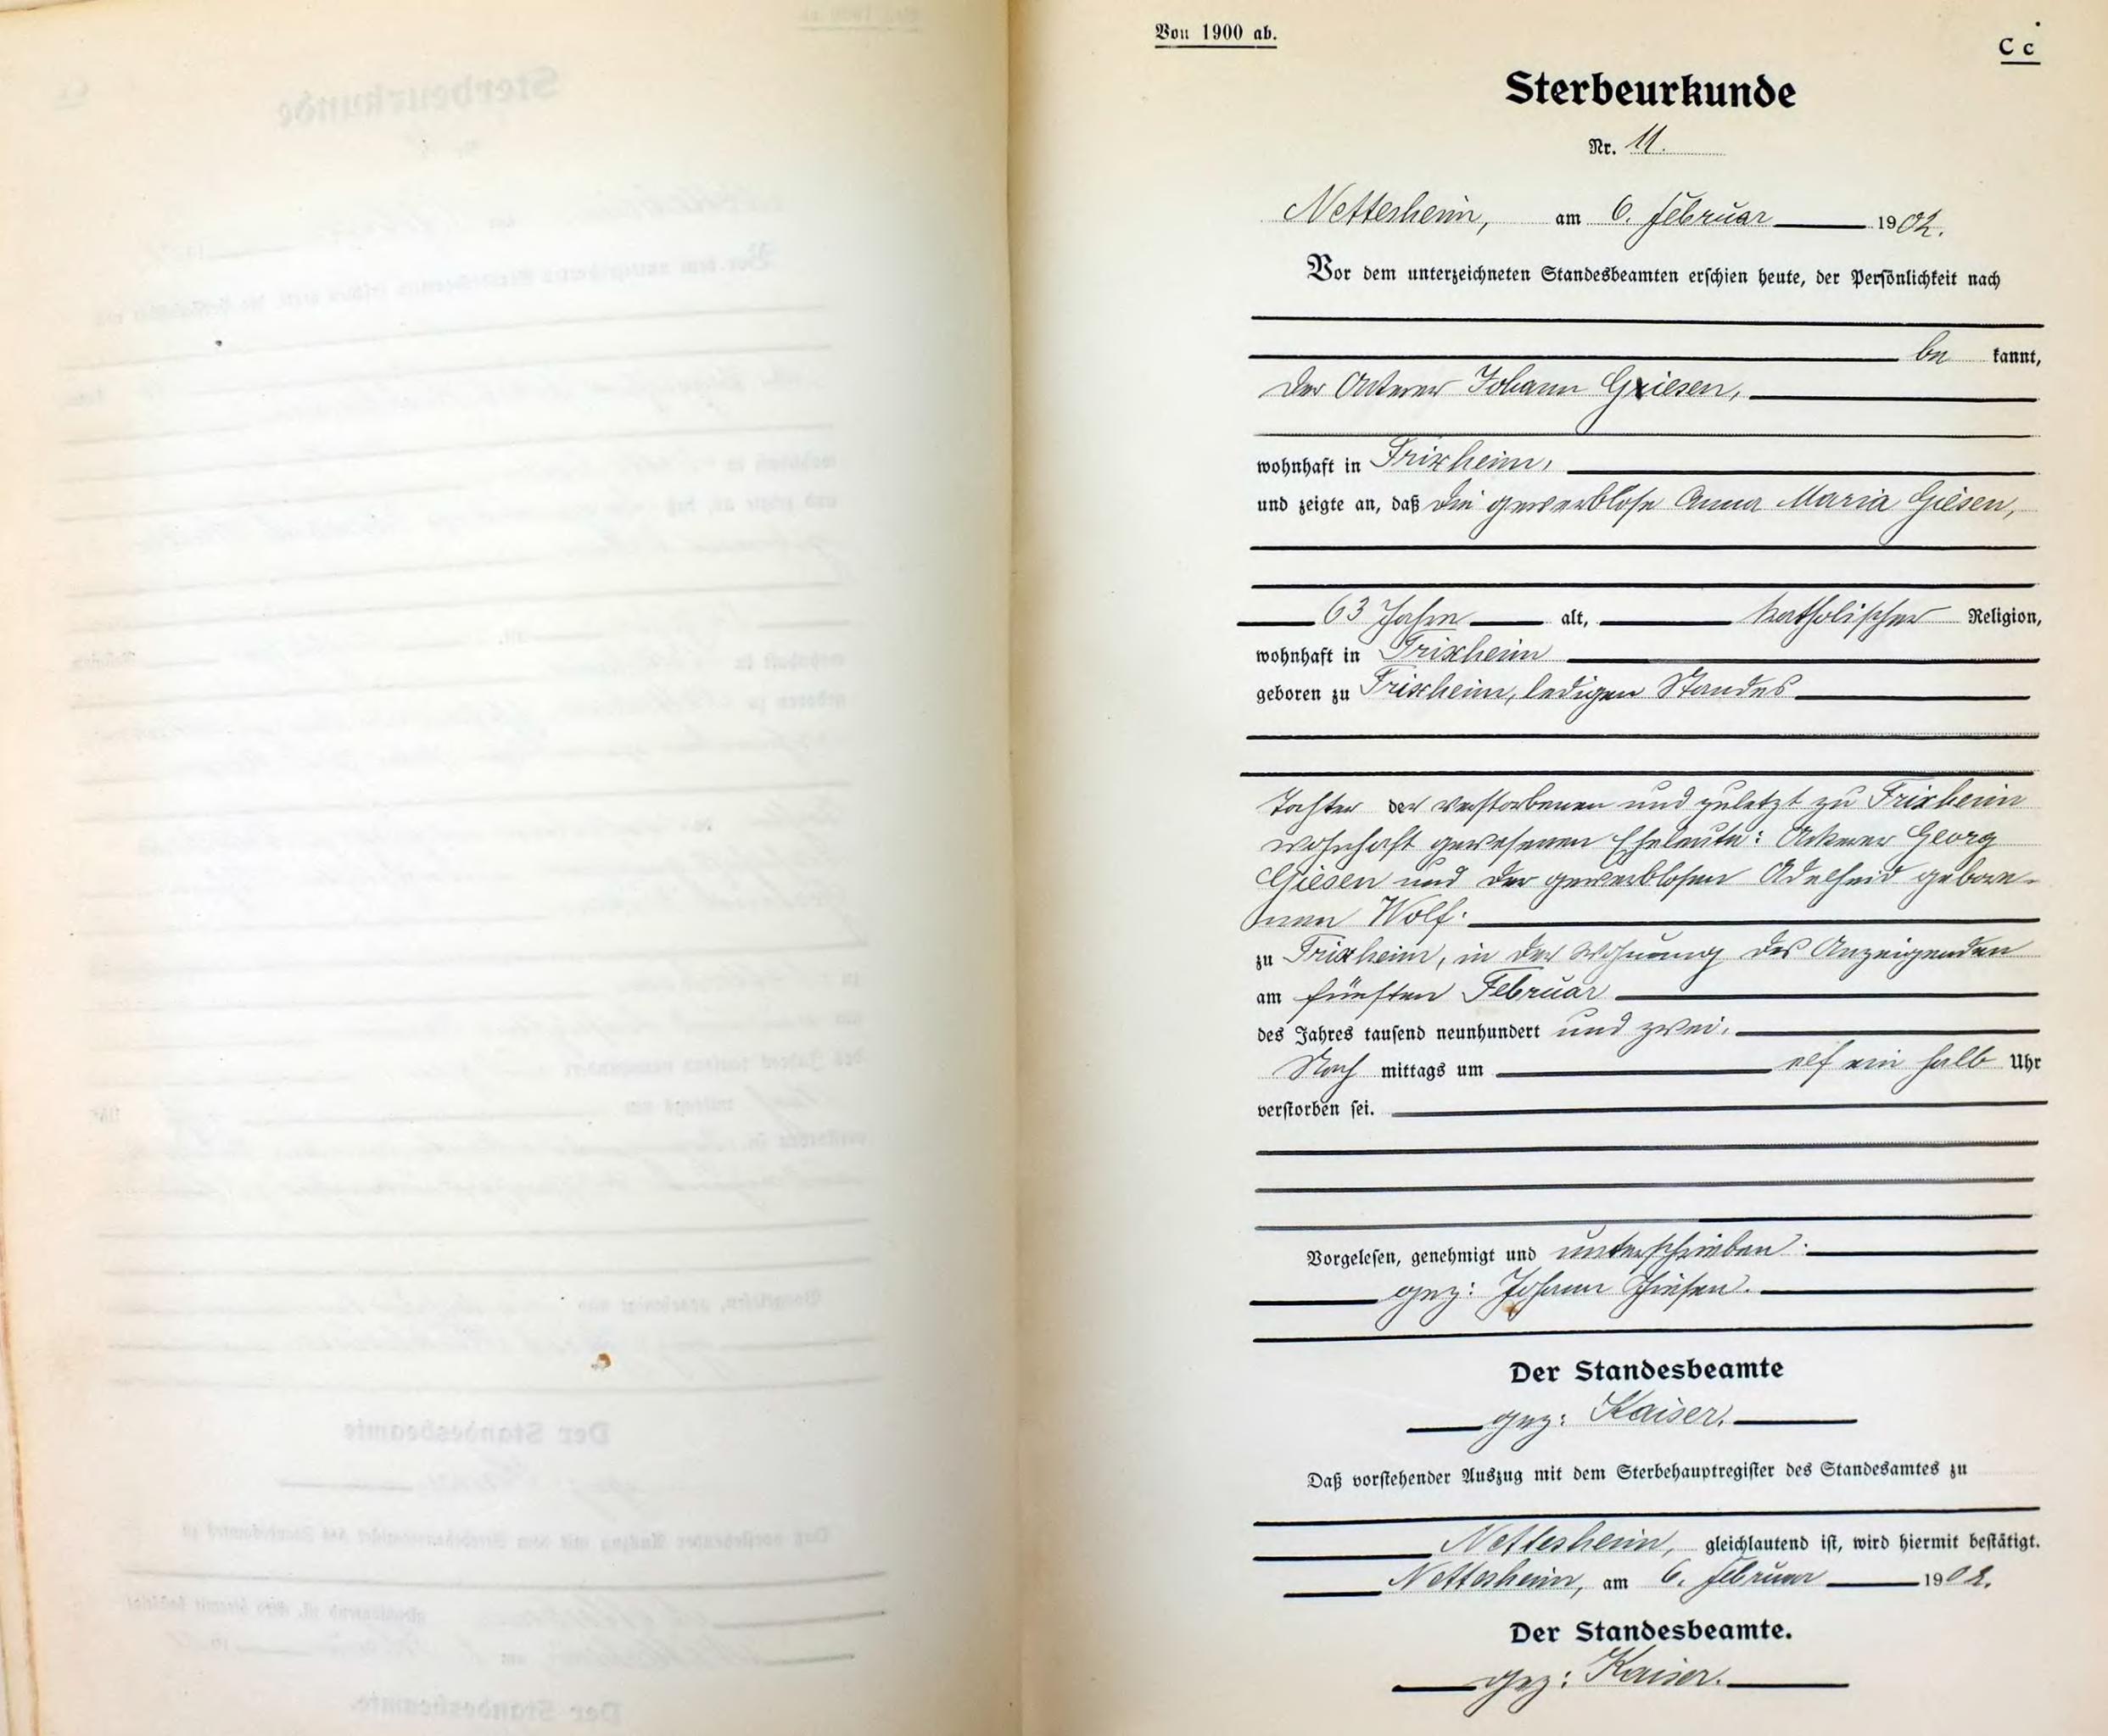 Von 1900 ab.
C c
Sterbeurkunde
Nr. 11.
Nettesheim, am 6. Februar 1902.
Vor dem unterzeichneten Standesbeamten erschien heute, der Persönlichkeit nach
be kannt,
der Ackerer Johann Giesen,
wohnhaft in Frixheim,
und zeigte an, daß die gewerblose Anna Maria Giesen,
63 Jahre alt, katholischer Religion,
wohnhaft in Frixheim
geboren zu Frixheim, ledigen Standes
Tochter der verstorbenen und zuletzt zu Frixheim
wohnhaft gewesenen Eheleute: Ackerer Georg
Giesen und der gewerblosen Adelheid gebore-
nen Wolf.
zu Frixheim, in der Wohnung des Anzeigenden
am fünften Februar
des Jahres tausend neunhundert und zwei,
Nach mittags um elf ein halb Uhr
verstorben sei.
Vorgelesen, genehmigt und unterschrieben.
gez: Johann Giesen.
Der Standesbeamte
gez: Kaiser.
Daß vorstehender Auszug mit dem Sterbehauptregister des Standesamtes zu
Nettesheim, gleichlautend ist, wird hiermit bestätigt.
Nettesheim, am 6. Februar 1902.
Der Standesbeamte.
gez: Kaiser.